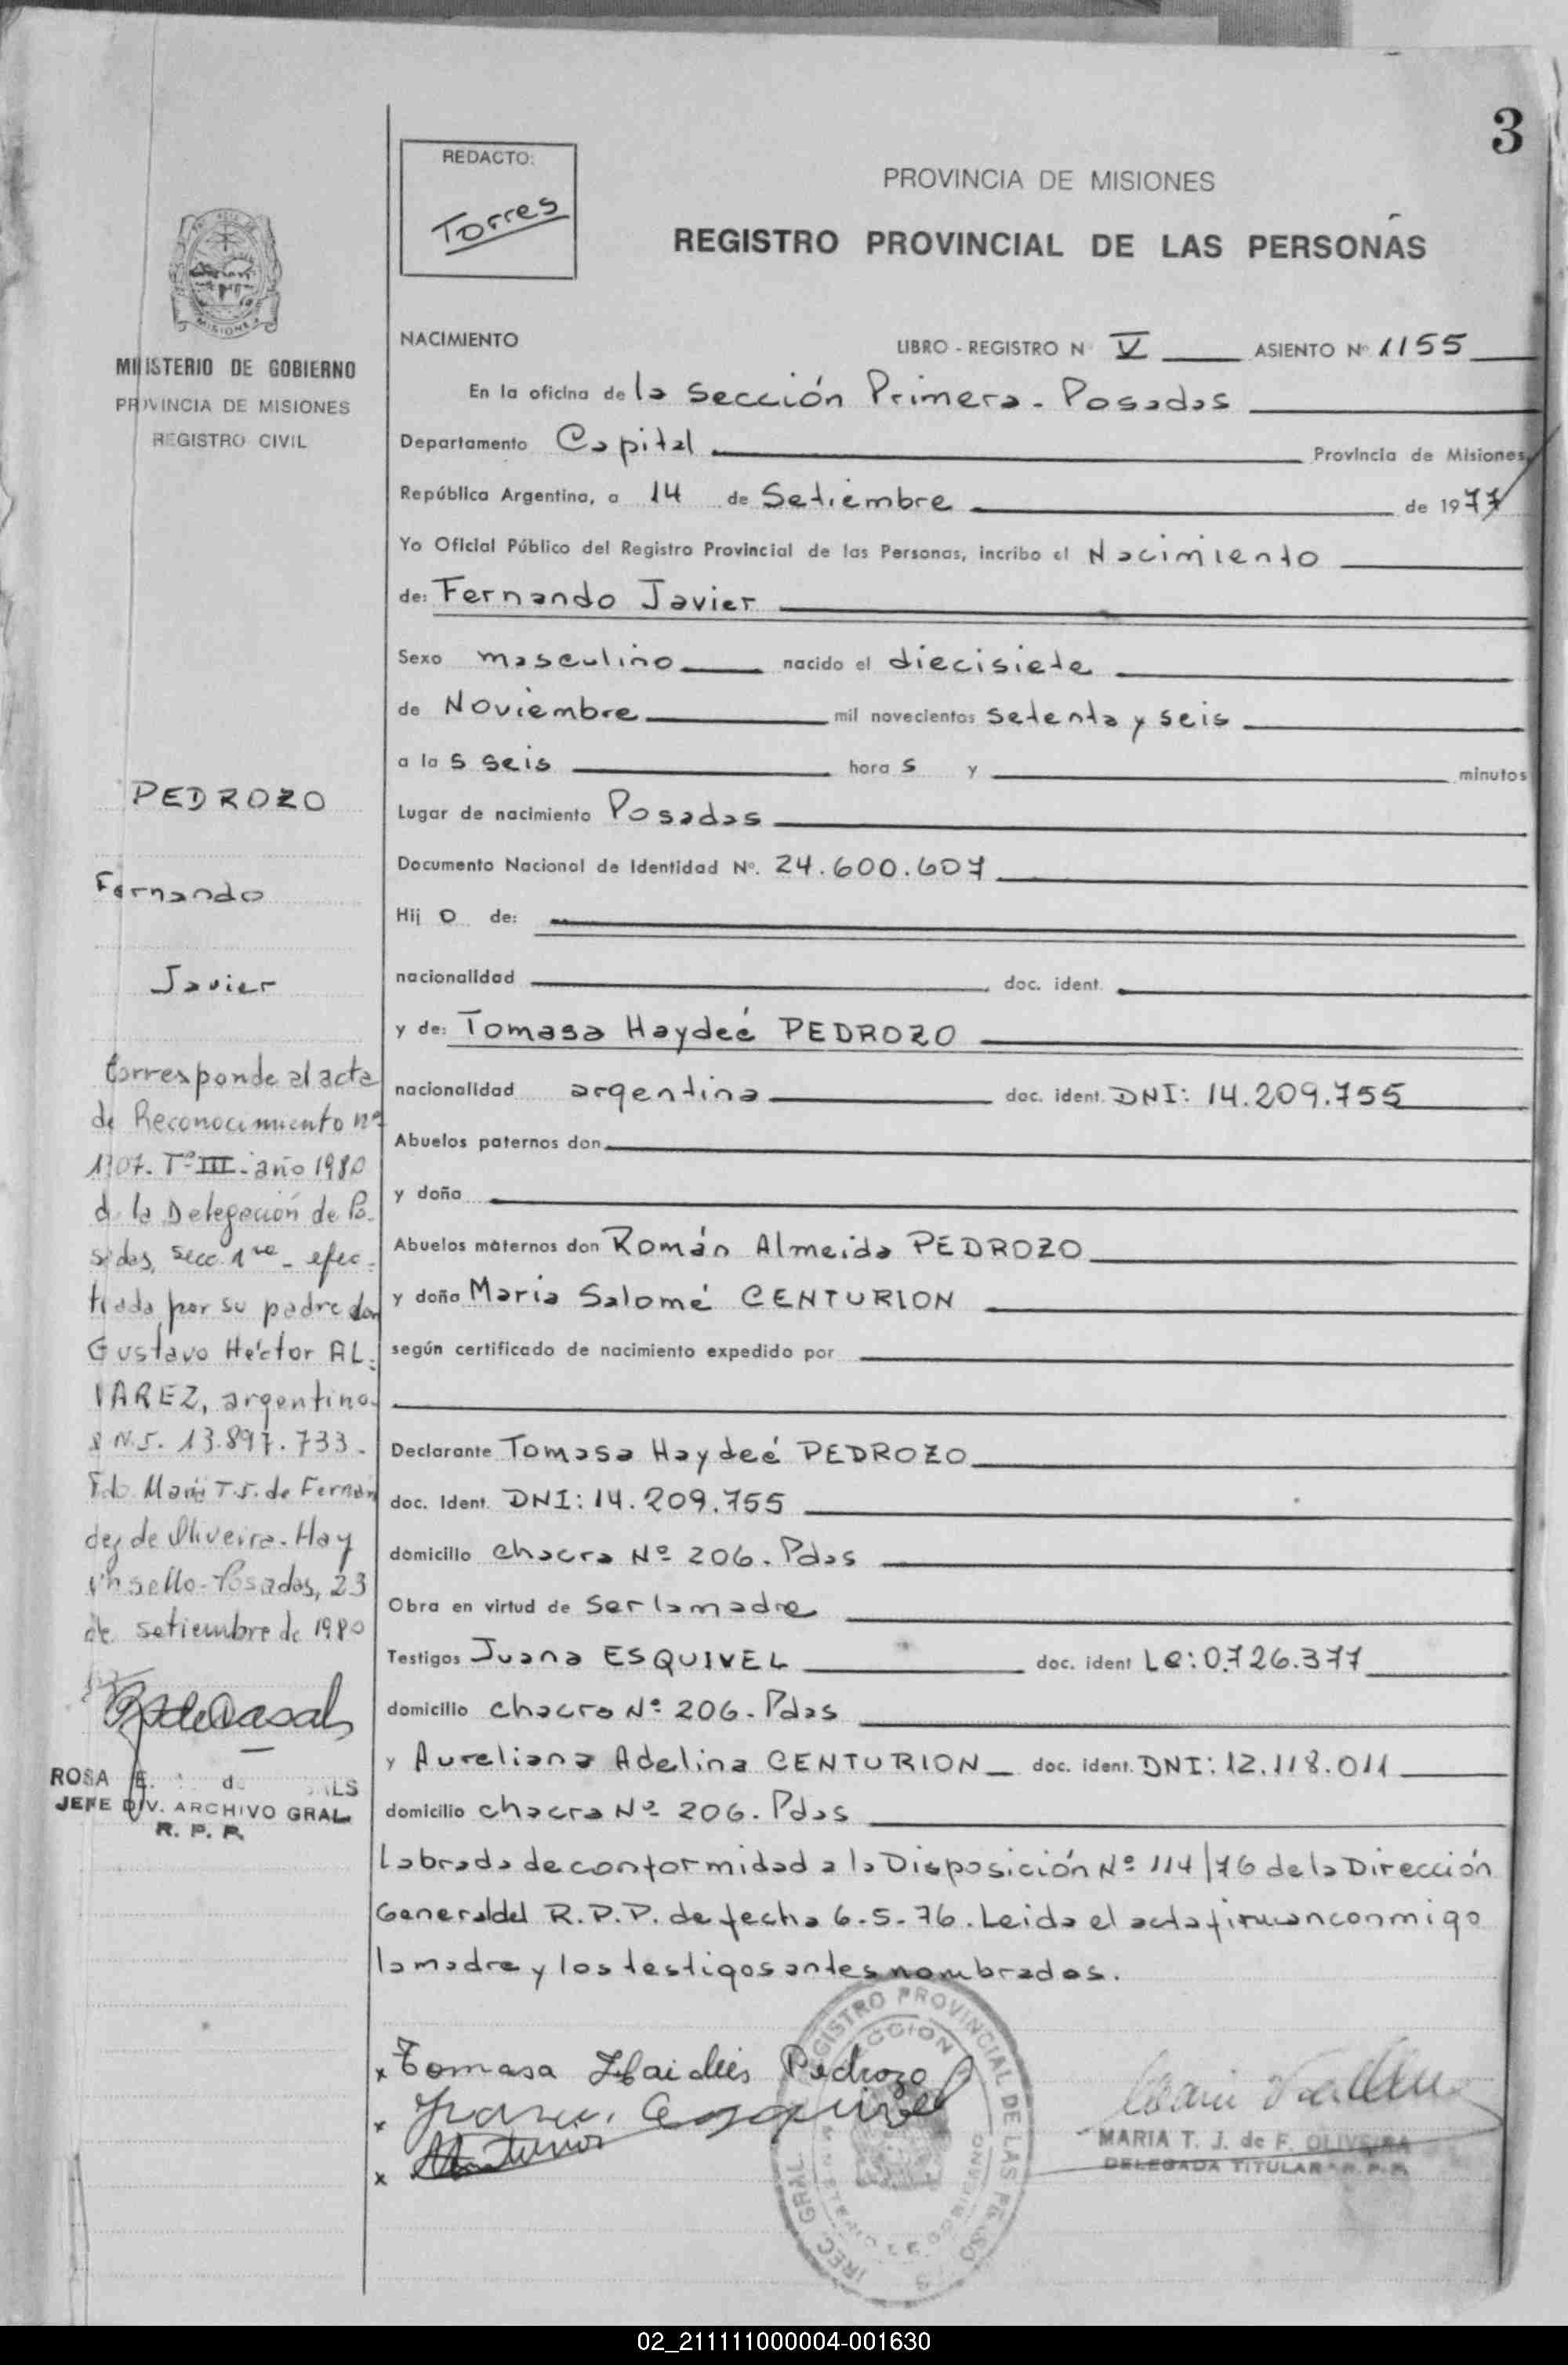 3
REDACTO:
Torres
PROVINCIA DE MISIONES
REGISTRO PROVINCIAL DE LAS PERSONAS
MISIONES
MINISTERIO DE GOBIERNO
PROVINCIA DE MISIONES
REGISTRO CIVIL
NACIMIENTO LIBRO - REGISTRO Nº V ASIENTO Nº 1155
En la oficina de la Sección Primera - Posadas
Departamento Capital Provincia de Misiones,
República Argentina, a 14 de Setiembre de 1977
Yo Oficial Público del Registro Provincial de las Personas, incribo el Nacimiento
de: Fernando Javier
Sexo masculino nacido el diecisiete
de Noviembre mil novecientos setenta y seis
a las seis horas y minutos
Lugar de nacimiento Posadas
Documento Nacional de Identidad Nº. 24.600.607
Hijo de:
nacionalidad doc. ident.
y de: Tomasa Haydeé PEDROZO
nacionalidad argentina doc. ident. DNI: 14.209.755
Abuelos paternos don
y doña
Abuelos maternos don Román Almeida PEDROZO
y doña Maria Salomé CENTURION
según certificado de nacimiento expedido por
Declarante Tomasa Haydeé PEDROZO
doc. Ident. DNI: 14.209.755
domicilio chacra Nº 206. Pdas
Obra en virtud de ser la madre
Testigos Juana ESQUIVEL doc. ident LC: 0.726.377
domicilio chacra Nº 206. Pdas
y Aureliana Adelina CENTURION doc. ident. DNI: 12.118.011
domicilio chacra Nº 206. Pdas
Labrada de conformidad a la Disposición Nº 114/76 de la Dirección
General del R.P.P. de fecha 6-5-76. Leida el acta firman conmigo
la madre y los testigos antes nombrados.
PEDROZO
Fernando
Javier
Corresponde al acta
de Reconocimiento nº
1107. Tº III - año 1980
de la Delegación de Po-
sadas, secc. 1ra - efec-
tuada por su padre don
Gustavo Héctor AL-
VAREZ, argentino
D.N.I. 13.897.733.
Fdo. Maria T.J. de Fernan
dez de Oliveira. Hay
un sello - Posadas, 23
de setiembre de 1980
ROSA E. de
JEFE DIV. ARCHIVO GRAL.
R. P. P.
x Tomasa Haideis Pedrozo
x Juana Esquivel
x
DIREC. GRAL. REGISTRO PROVINCIAL DE LAS PERSONAS
MINISTERIO DE GOBIERNO
MARIA T. J. de F. OLIVEIRA
DELEGADA TITULAR R.P.P.
02_211111000004-001630